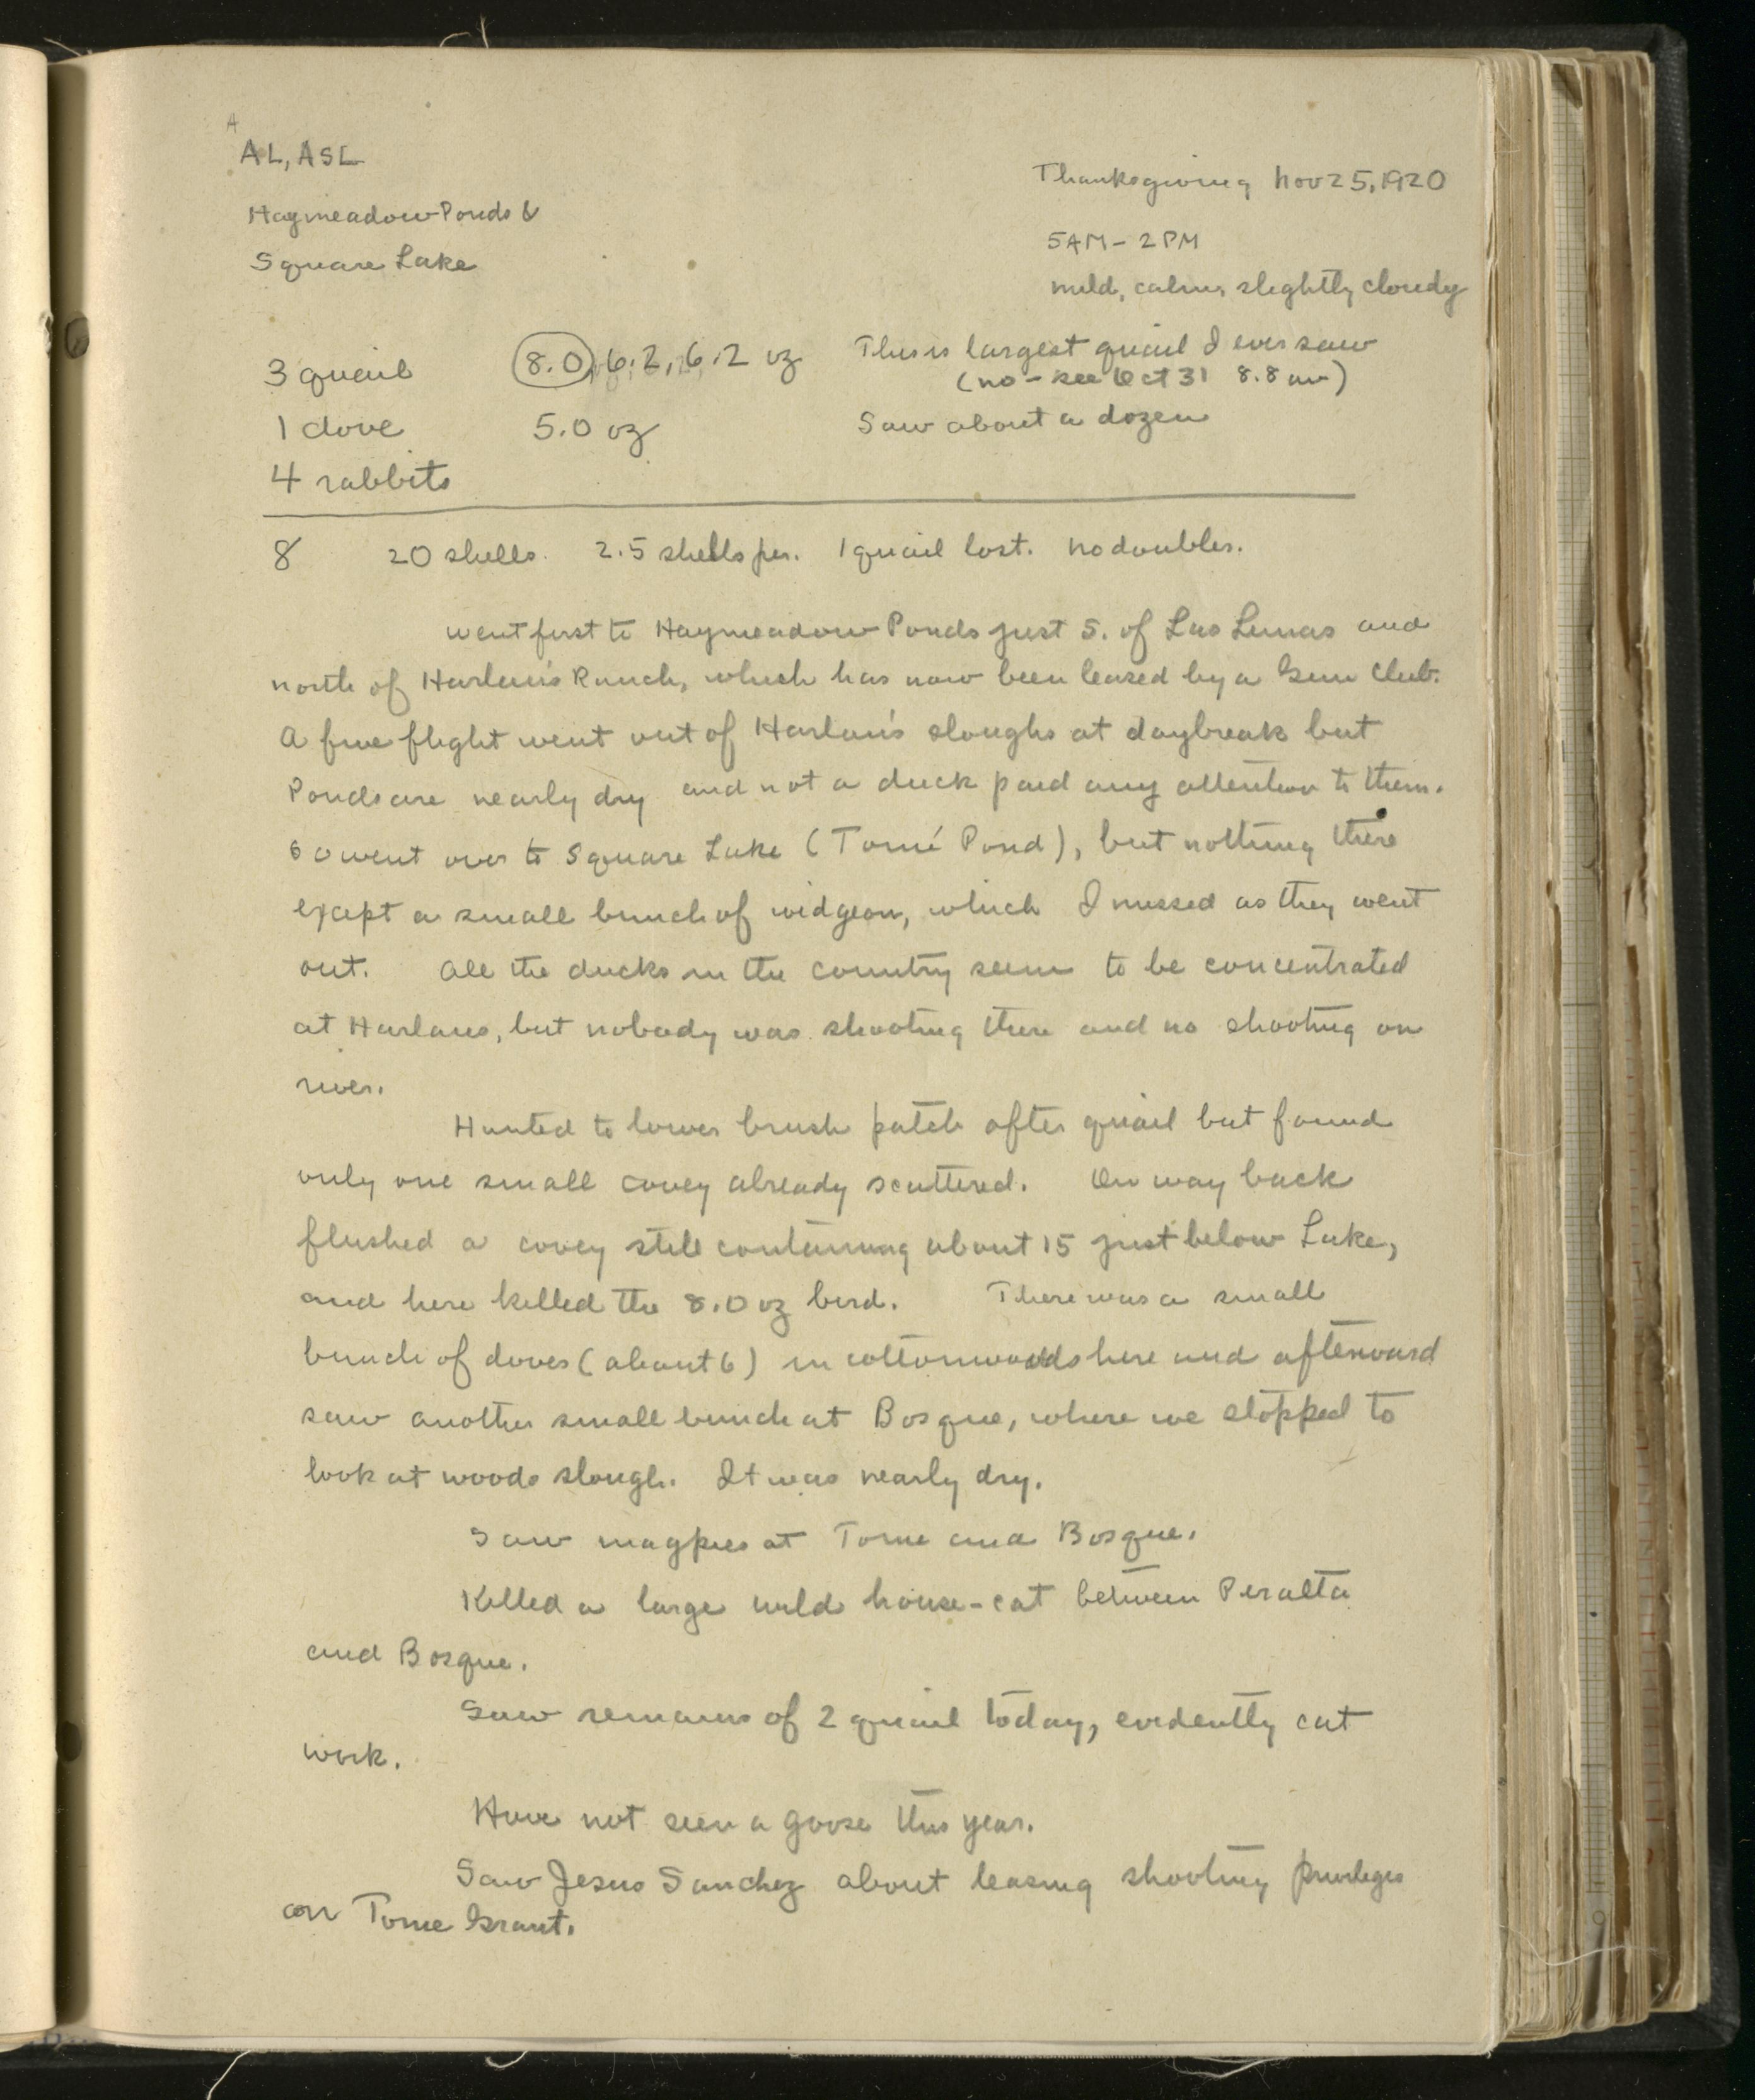 A
AL, ASL
Thanksgiving Nov 25, 1920
Haymeadow Ponds &
Square Lake
5AM - 2PM
mild, calm, slightly cloudy
3 quail 8.0, 6.2, 6.2 oz This is largest quail I ever saw
(no - see Oct 31 8.8 oz)
1 dove 5.0 oz Saw about a dozen
4 rabbits
8 20 shells. 2.5 shells per. 1 quail lost. No doubles.
Went first to Haymeadow Ponds just S. of Los Lunas and
north of Harlan's Ranch, which has now been leased by a Gun Club.
A fine flight went out of Harlan's sloughs at daybreak but
Ponds are nearly dry and not a duck paid any attention to them.
So went over to Square Lake (Tomé Pond), but nothing there
except a small bunch of widgeon, which I missed as they went
out. All the ducks in the country seem to be concentrated
at Harlans, but nobody was shooting there and no shooting on
river.
Hunted to lower brush patch after quail but found
only one small covey already scattered. On way back
flushed a covey still containing about 15 just below Lake,
and here killed the 8.0 oz bird. There was a small
bunch of doves (about 6) in cottonwoods here and afterward
saw another small bunch at Bosque, where we stopped to
look at woods slough. It was nearly dry.
Saw magpies at Tome and Bosque.
Killed a large wild house-cat between Peralta
and Bosque.
Saw remains of 2 quail today, evidently cat
work.
Have not seen a goose this year.
Saw Jesus Sanchez about leasing shooting privileges
on Tome Grant.